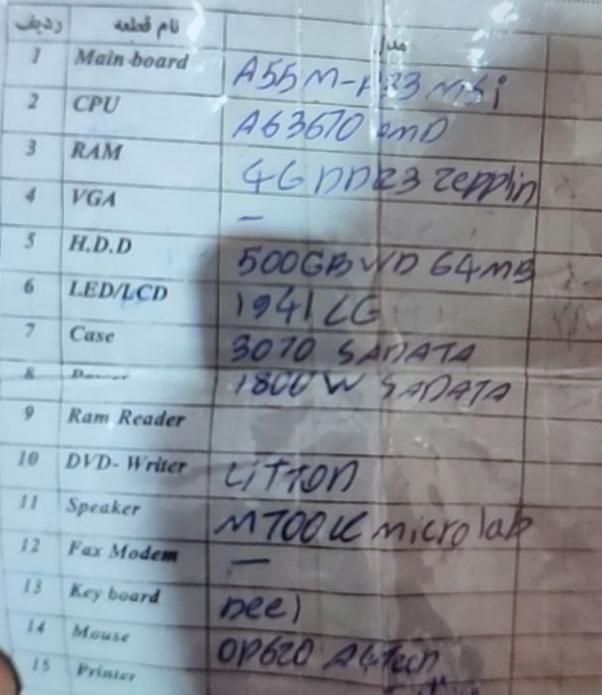 ردیف نام قطعه مدل
1 Main board A55M-P33 MSi
2 CPU A63670 amD
3 RAM 4G DDR3 Zepplin
4 VGA –
5 H.D.D 500GB WD 64MB
6 LED/LCD 1941 LG
7 Case 3070 SADATA
8 Power 1800W SADATA
9 Ram Reader
10 DVD- Writer LiTTON
11 Speaker M700U microlab
12 Fax Modem –
13 Key board
14 Mouse OP620 A4Tech
15 Printer